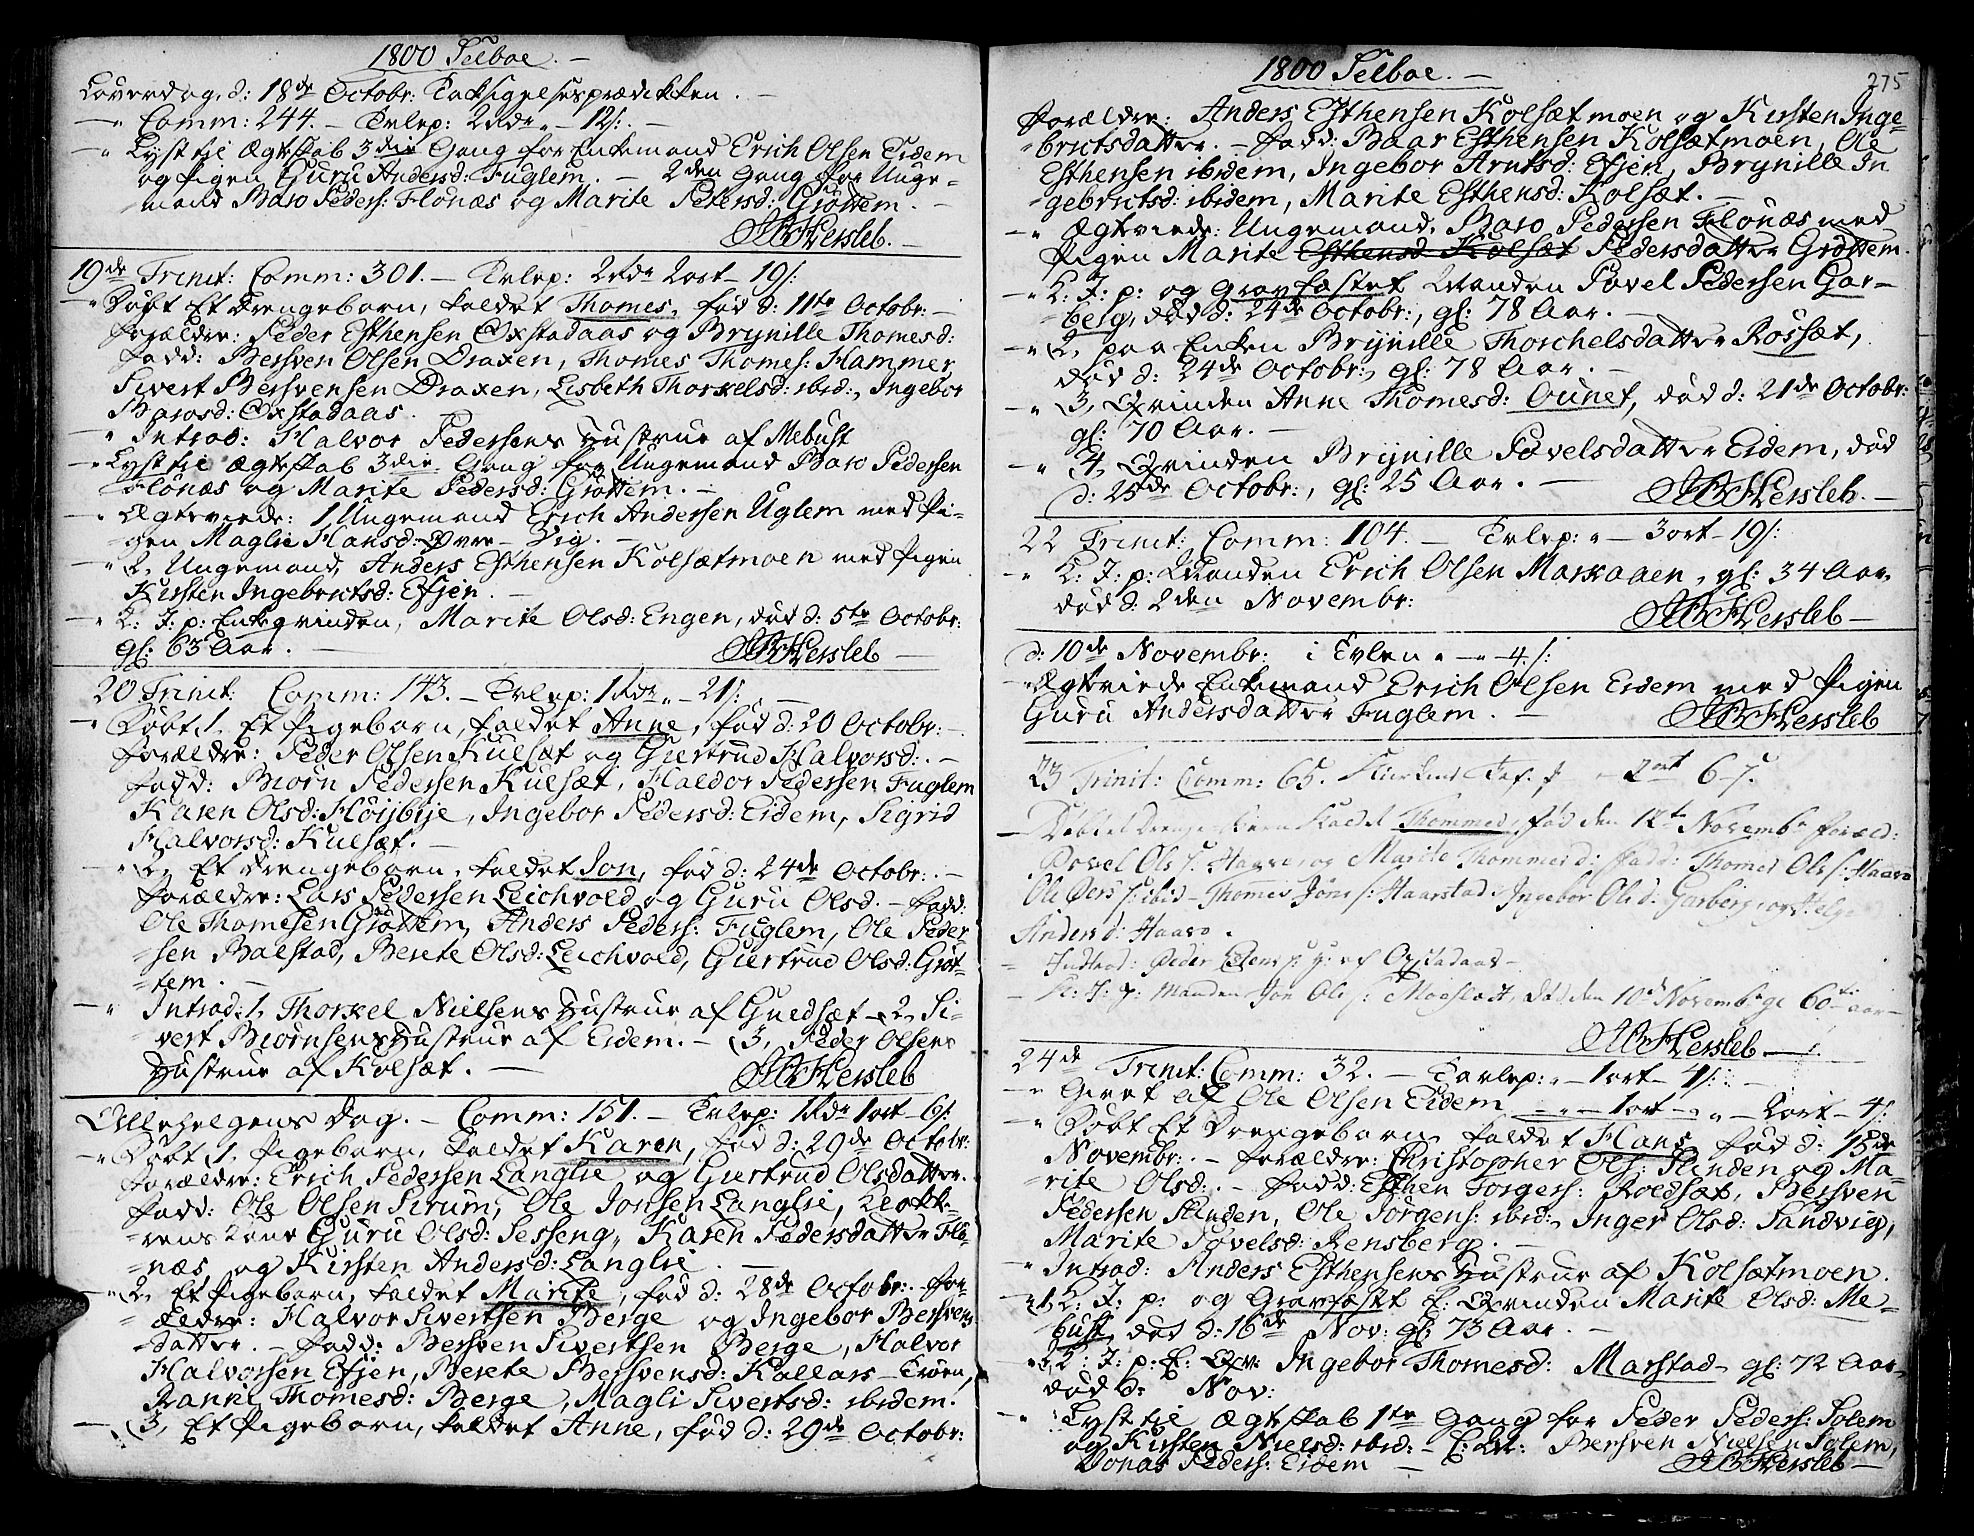 1800 Selboe. –
Løverdag, d: 18de Octobr: Taksigelsesprædikken. –
–„ Comm: 244. – Tvlep: 2 Rdr „ – 12 s: –
–„ Lyst til Ægteskab 3die Gang for Enkemand Erich Olsen Eidem
og Pigen Guru Andersd: Fuglem. – 2den Gang for Unge-
-mand Baro Peders: Flønæs og Marite Pedersd: Grøttem. –
HHersleb. –
19de Trinit: Comm: 301. – Tvlep: 2 Rdr 2 ort – 19 s:
–„ Døbt Et Drengebarn, kaldet Thomes, fød d: 11te Octobr: –
Forældre: Peder Esthensen Oxstadaas og Brynille Thomesd:
Fadd: Bersven Olsen Draxen, Thomes Thomes: Hammer,
Sivert Bersvensen Draxen, Lisbeth Thorkelsd: ibid:, Ingebor
Barosd: Oxstadaas.
–„ Introd: Halvor Pedersens Hustrue af Mebust
–„ Lyst til Ægteskab 3die Gang for Ungemand Baro Pedersen
Flønæs og Marite Pedersd: Grøttem. –
–„ Ægteviede: 1, Ungemand Erich Andersen Uglem med Pi-
gen Magli Hansd: Øvre-Vig. –
–„ 2, Ungemand, Anders Esthensen Kolsætmoen med Pigen
Kirsten Ingebrictsd: Efjen. –
–„ K: J: p: Enkeqvinden, Marite Olsd: Engen, død d: 5te Octobr:
gl: 63 Aar. –
HHersleb –
20 Trinit: Comm: 143. – Tvlep: 1 Rdr „ – 21 s: –
–„ Døbt 1, Et Pigebarn, kaldet Anne, fød d: 20 Octobr: –
Forældre: Peder Olsen Kulsæt og Giertrud Halvorsd: –
Fadd: Biørn Pedersen Kulsæt, Haldor Pedersen Fuglem
Karen Olsd: Høijbije, Ingebor Pedersd: Eidem, Sigrid
Halvorsd: Kulsæt. –
–„ 2, Et Drengebarn, kaldet Jon, fød d: 24de Octobr: –
Forældre: Lars Pedersen Leichvold og Guru Olsd. – Fadd:
Ole Thomesen Grøttem, Anders Peders: Fuglem, Ole Peder-
-sen Balstad, Berete Olsd: Leichvold, Giertrud Olsd: Grøt-
-tem. –
–„ Introd: 1, Thorkel Nielsens Hustrue af Guedsæt – 2, Si-
vert Biørnsens Hustrue af Eidem. – 3, Peder Olsens
Hustrue af Kolsæt. –
HHersleb
Allehelgens Dag. – Comm: 151. – Tvlep: 1 Rdr 1 ort – 6 s:
–„ Døbt 1, Pigebarn, kaldet Karen, fød d: 29de Octobr:
Forældre: Erich Pedersen Langlie og Giertrud Olsdatter.
Fadd: Ole Olsen Sirum, Ole Jonsen Langlie, Klokke-
-rens Kone Guru Olsd: Sesseng, Karen Pedersdatter Flø-
-næs og Kirsten Andersd: Langlie. –
–„ 2, Et Pigebarn, kaldet Marite, fød d: 28de Octobr: – For-
-ældre: Halvor Sivertsen Berge og Ingebor Bersvens-
-datter. – Fadd: Bersven Sivertsen Berge, Halvor
Halvorsen Efjen, Berete Bersvensd: Kallars-Trøen,
Ranni Thomesd: Berge, Magli Sivertsd: ibidem.
– 3, Et Pigebarn, kaldet Anne, fød d: 29de Octobr:
1800 Selboe. –
275
Forældre: Anders Esthensen Kolsætmoen og Kirsten Inge-
-brictsdatter. – Fadd: Baar Esthensen Kolsætmoen, Ole
Esthensen ibidem, Ingebor Arntsd: Efjen, Brynille In
-gebrictsd: ibidem, Marite Esthensd: Kolsæt. –
–„ Ægteviede: Ungemand, Baro Pedersen Flønæs med
Pigen Marite Esthensd Kolsæt Pedersdatter Grøttem.
–„ K: J: p: og Gravfæstet Manden Povel Pedersen Gar-
-berg, død d: 24de Octobr:, gl: 78 Aar. –
–„ 2, paa Enken Brynille Thorchelsdatter Rossæt,
død d: 24de Octobr:, gl: 78 Aar. –
–„ 3, Qvinden Anne Thomesd: Ounet, død d: 21de Octobr:
gl: 70 Aar. –
–„ 4, Qvinden Brynille Povelsdatter Eidem, død
d: 25de Octobr:, gl: 25 Aar. –
HHersleb. –
22 Trinit: Comm: 104. – Tvlep: „ – 3 ort – 19 s:
–„ K: J: p: Manden Erich Olsen Markaaen, gl: 34 Aar,
død d: 2den Novembr:
HHersleb –
d: 10de Novembr: i Tvlen „ – „ 4 s:
–„ Ægteviede Enkemand Erich Olsen Eidem med Pigen
Guru Andersdatter Fuglem. –
HHersleb
23 Trinit: Comm: 65. – 2 ort 6
– Døbt et Drenge-Barn Kaldet Thommes, fød den 12te Novembr Foræld:
Povel Ols s: Haave og Marite Thommesd: Fadd: Thomes Ols s: Haave
Ole ibid – Thomes Jons s: Haarstad Ingebor Olsd: Garberg og Helge
Andersd: Haave.
– Introd: Peder af Oxstadaas –
– K: J: p: Manden Jon Ols s: Moeslæt, død den 10de Novembr gl 60 aar –
HHersleb –
24de Trinit: Comm: 32. – Tavlep: „ – 1 ort – 4 s: –
–„ Givet af Ole Olsen Eidem – „ – 1 ort – „ – 2 ort – 4 s:
–„ Døbt Et Drengebarn, kaldet Hans, fød d: 15de
Novembr: – Forældre: Christopher Ols: Slinden og Ma-
-rite Olsd: – Fadd: Esthen Torgers: Roldsæt, Bersven
Pedersen Slinden, Ole Jorgens: ibid:, Inger Olsd: Sandvig,
Marite Povelsd: Rensberg. –
–„ Introd: Anders Esthensens Hustrue af Kolsætmoen.
–„ 1, K: J: p: og Gravfæstet E: Qvinden Marite Olsd: Me-
-bust, død d: 16de Nov: gl: 73 Aar. –
–„ 2, K: J: p: E: Qv: Ingebor Thomesd: Marstad – gl: 72 Aar,
død d: Nov:
–„ Lyst til Ægteskab 1te Gang for Peder Peders: Solem
og Kirsten Nielsd: ibid: – Bersven Nielsen Solem,
Jonas Peders: Eidem –
HHersleb –